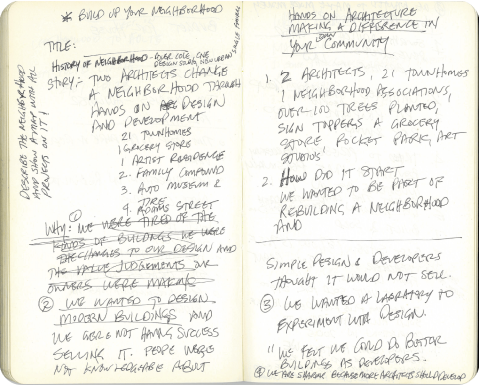 * BUILD UP YOUR NEIGHBORHOOD
TITLE:
HISTORY OF NEIGHBORHOOD
STORY:- TWO ARCHITECTS CHANGE
A NEIGHBORHOOD THROUGH
HANDS ON DESIGN
AND DEVELOPMENT
21 TOWNHOMES
1 GROCERY STORE
1 ARTIST RESIDENCE
2. FAMILY COMPOUND
3. AUTO MUSEUM &
TIRE
4. ROOMS STREET
DESCRIBE THE NEIGHBORHOOD
AND SHOW A MAP WITH ALL
PROJECTS ON IT!
WHY: ① WE WERE TIRED OF THE
KINDS OF BUILDINGS WE WERE
CHANGES TO OUR DESIGN AND
THE VALUE JUDGEMENTS OUR
OWNERS WERE MAKING
② WE WANTED TO DESIGN
MODERN BUILDINGS AND
WE WERE NOT HAVING SUCCESS
SELLING IT. PEOPLE WERE
NOT KNOWLEDGEABLE ABOUT
HANDS ON ARCHITECTURE
MAKING A DIFFERENCE IN
YOUR OWN COMMUNITY
1. 2 ARCHITECTS, 21 TOWNHOMES
1 NEIGHBORHOOD ASSOCIATIONS,
OVER 100 TREES PLANTED,
SIGN TOPPERS A GROCERY
STORE, POCKET PARK, ART
STUDIOS,
2. HOW DID IT START
WE WANTED TO BE PART OF
REBUILDING A NEIGHBORHOOD
AND
SIMPLE DESIGN & DEVELOPERS
THOUGHT IT WOULD NOT SELL.
③ WE WANTED A LABORATORY TO
EXPERIMENT WITH DESIGN.
"WE FELT WE COULD DO BETTER
BUILDINGS AS DEVELOPERS.
④ WE ARE SHARING BECAUSE MORE ARCHITECTS SHOULD DEVELOP